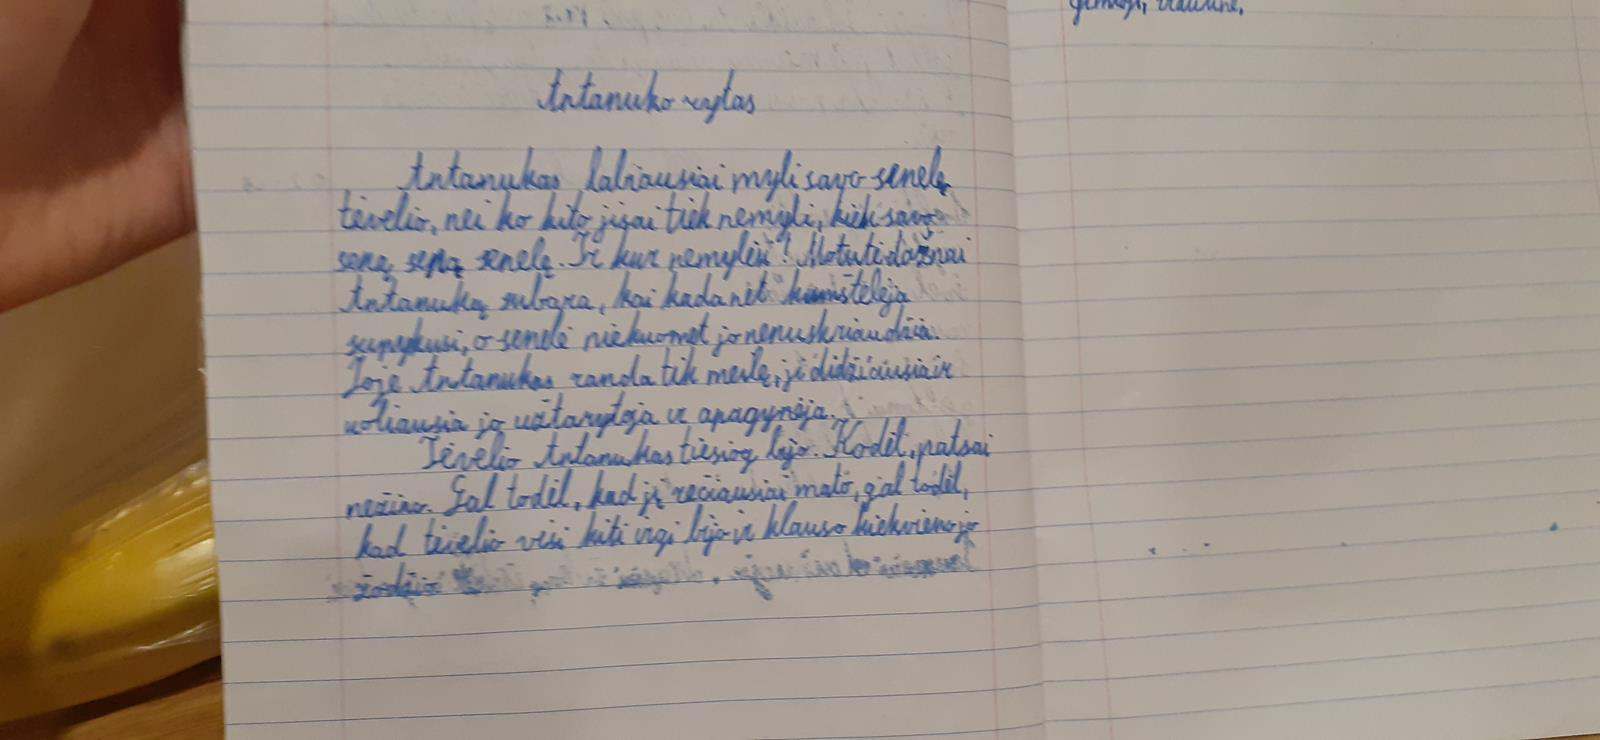 Antanuko rytas
Antanukas labiausiai myli savo senelę
tėvelio, nei ko kito jisai tiek nemyli, kiek savo
seną seną senelę. Ir kur nemylėsi! Motutė dažnai
Antanuką subara, kai kada net kumštelėja
supykusi, o senelė niekuomet jo nenuskriaudžia.
Joje Antanukas randa tik meilę, ji didžiausia ir
uoliausia jo užtarytoja ir apagynėja.
Tėvelio Antanukas tiesiog bijo. Kodėl, patsai
nežino. Gal todėl, kad jį rečiausiai mato, gal todėl,
kad tėvelio visi kiti irgi bijo ir klauso kiekvieno jo
žodžio